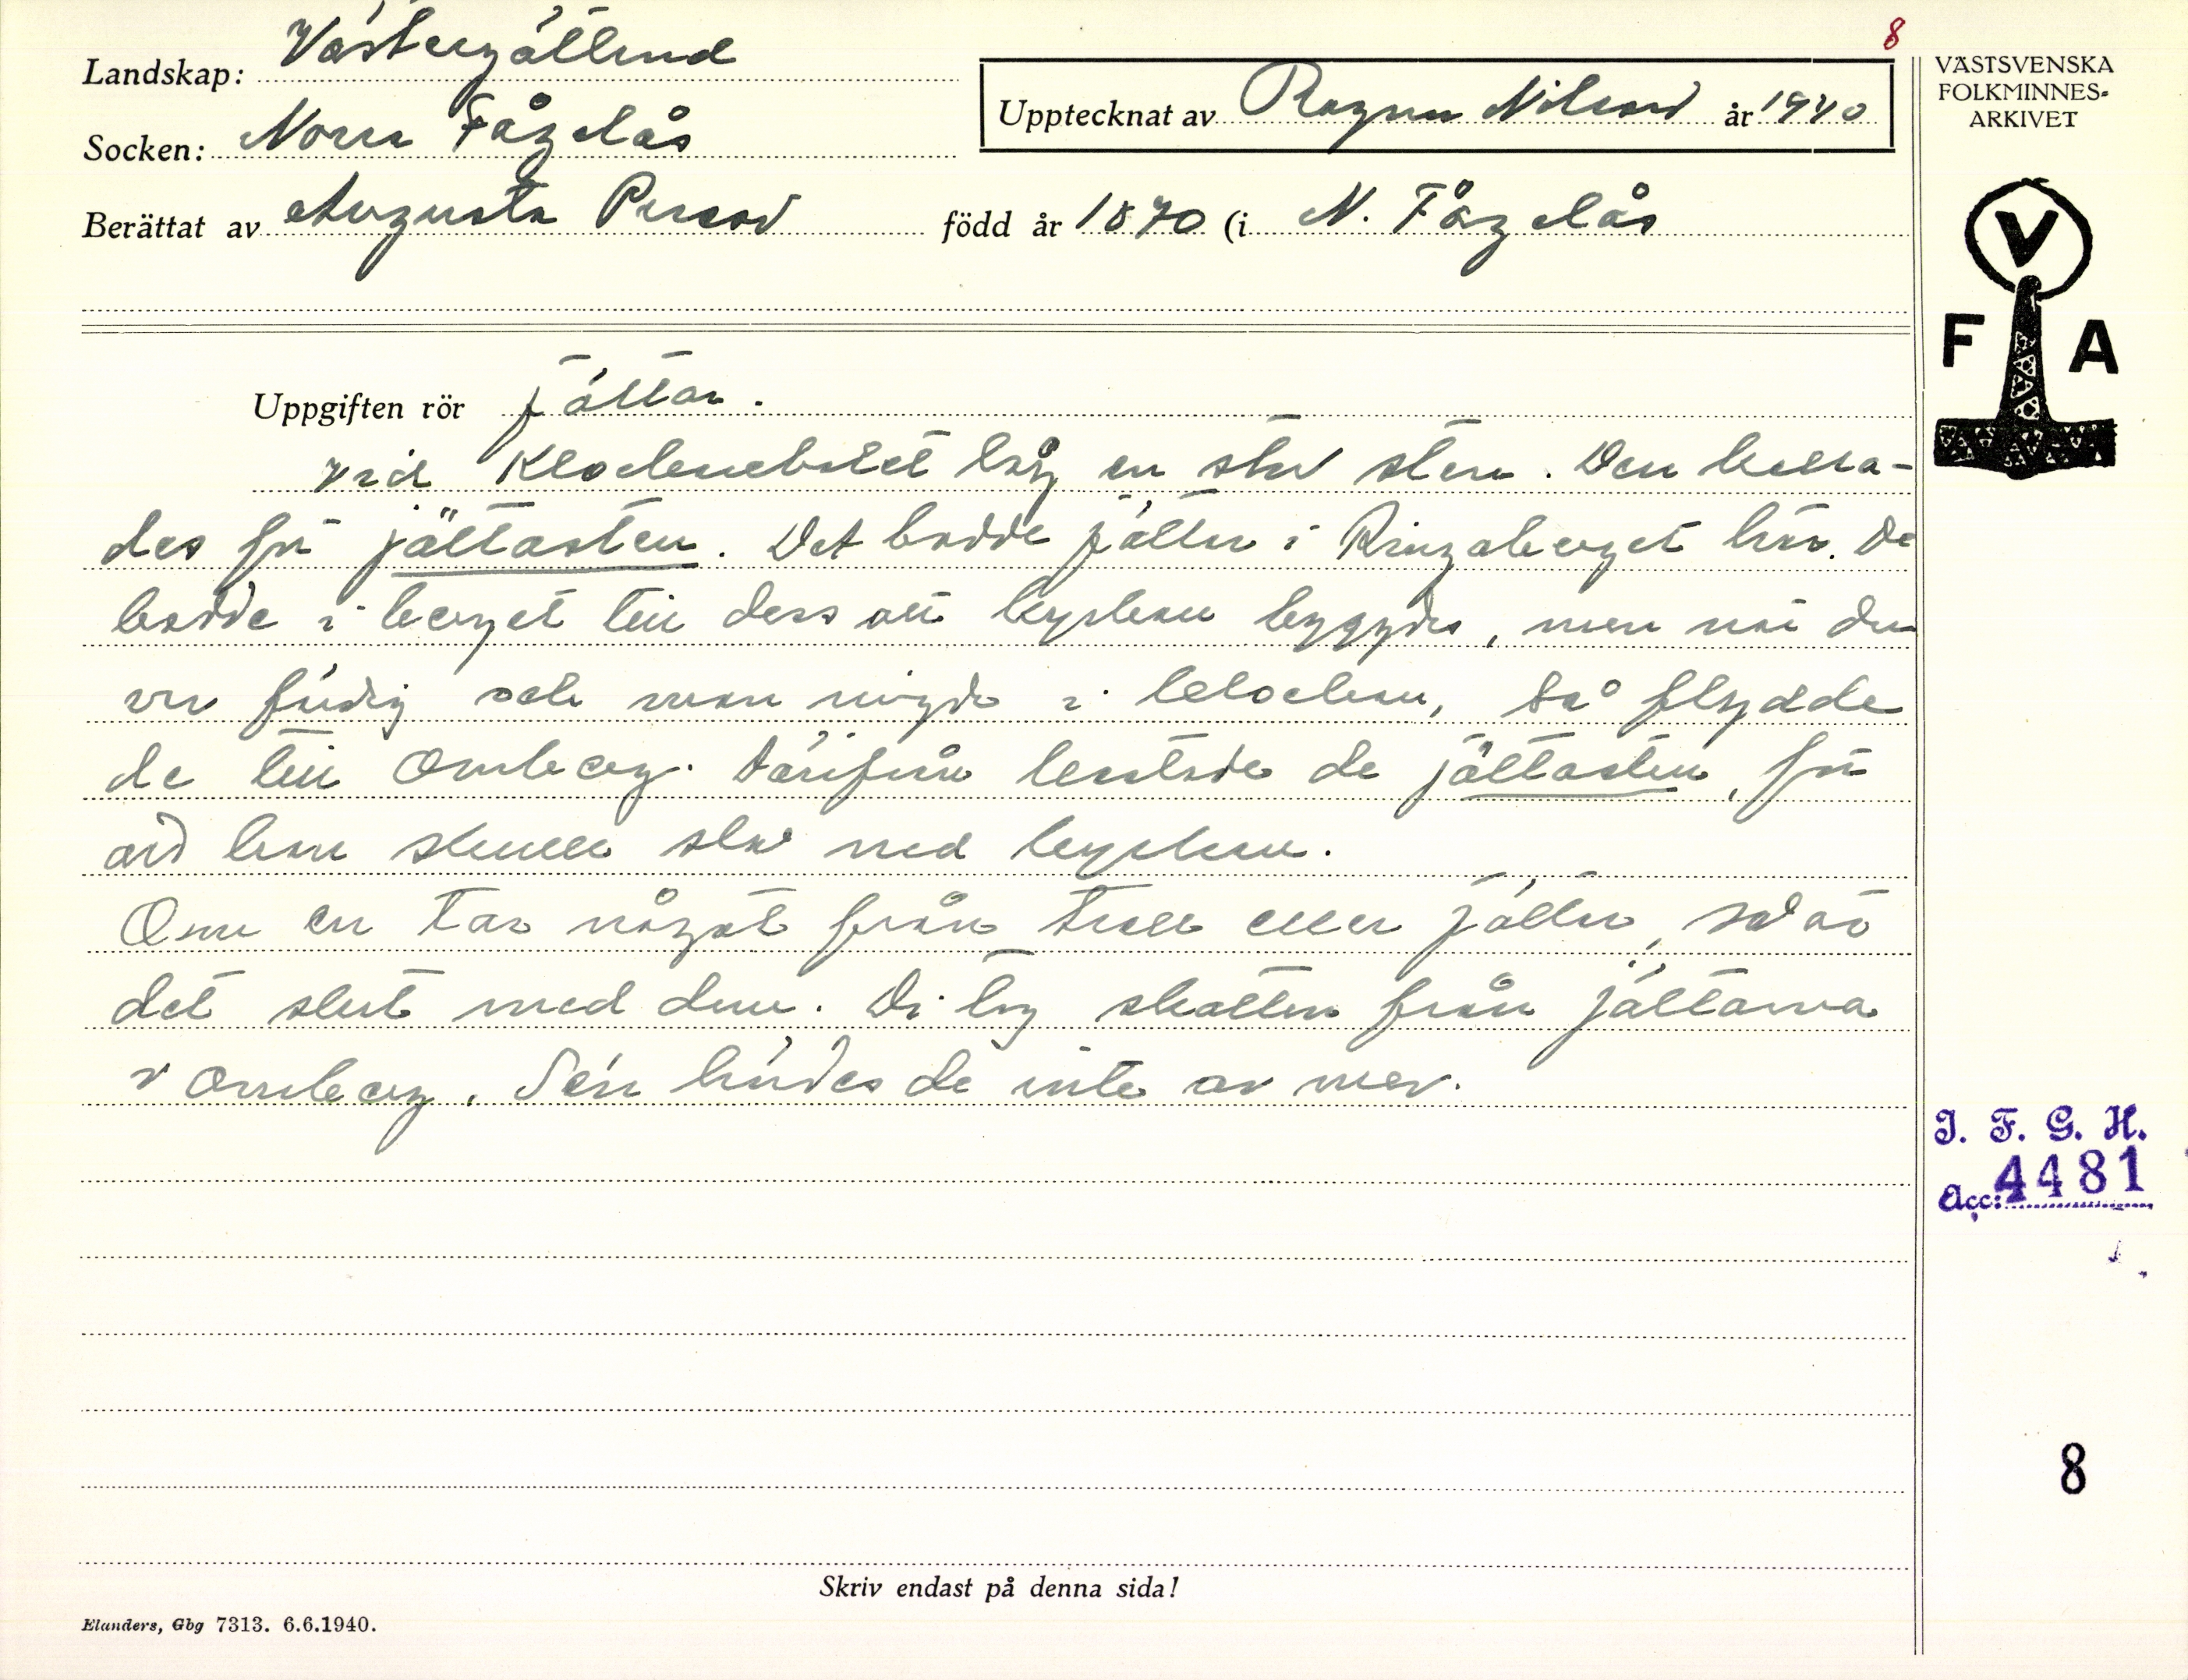 8
Landskap: Västergötland
Socken: Norra Fågelås
Upptecknat av Ragnar Nilsson år 1940
Berättat av Augusta Persson född år 1870 (i N. Fågelås
VÄSTSVENSKA
FOLKMINNES-
ARKIVET
V
F A
Uppgiften rör jättar.
Vid Klockebolet låg en stor sten. Den kalla-
des för jättasten. Det bodde jättar i Ringaberget här. De
bodde i berget till dess att kyrkan byggdes, men när den
var färdig och man ringde i klockan, så flydde
de till Omberg. Därifrån kastade de jättasten, för
att han skulle slå ned kyrkan.
Om en tar något från troll eller jättar, så är
det slut med dem. Di tog skatten från jättarna
i Omberg. Sen hördes de inte av mer.
I. F. G. H.
Acc: 4481
8
Skriv endast på denna sida!
Elanders, Gbg 7313. 6.6.1940.